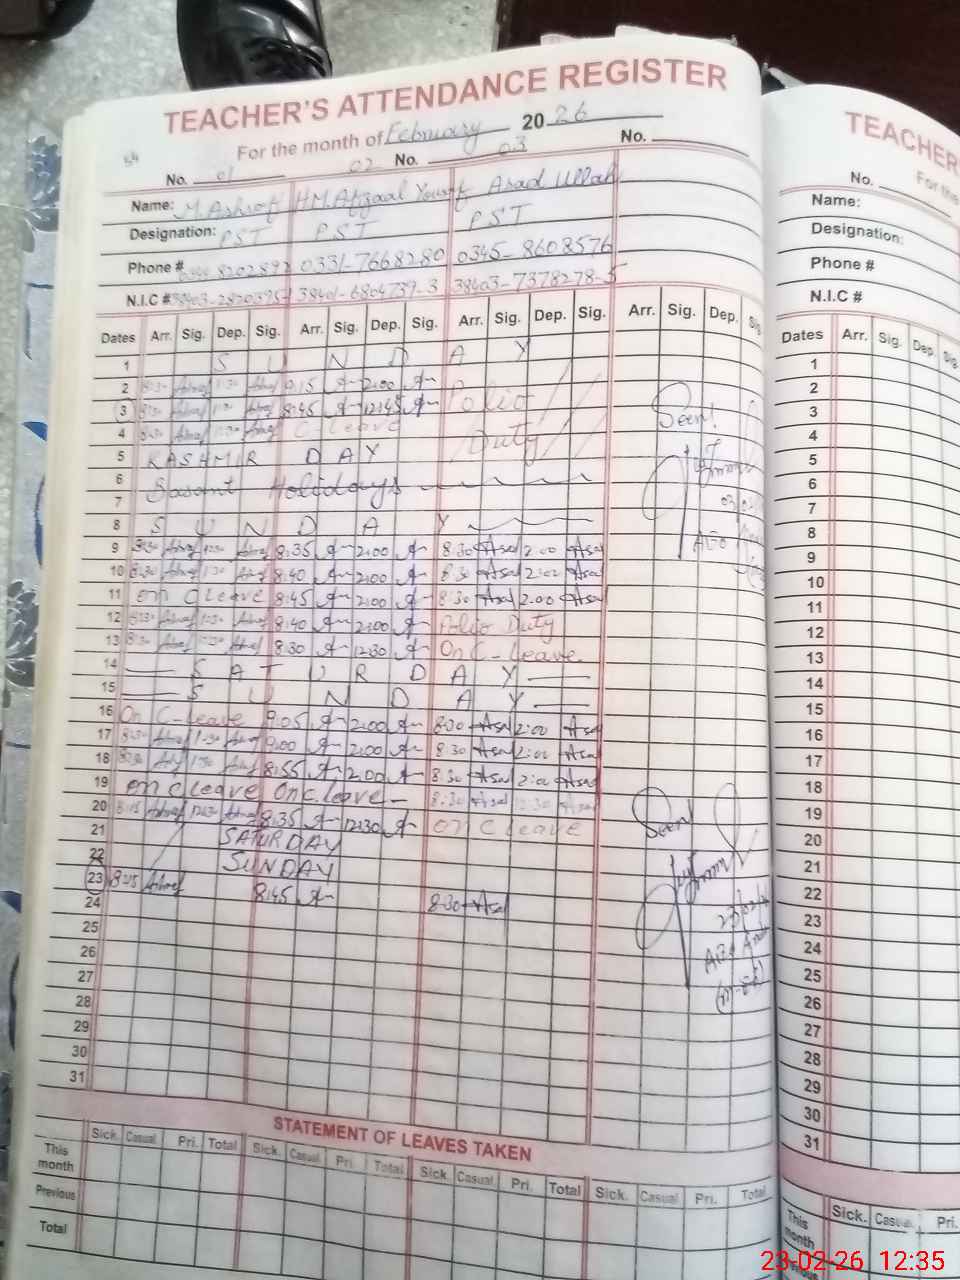 TEACHER'S ATTENDANCE REGISTER
For the month of February 2026
No. 01 02 No. 03 No.
Name: M. Ashraf H.M. Afzaal Yousaf Asad Ullah
Designation: PST PST PST
Phone # 8202892 0331-7668280 0345-8608576
N.I.C # 38401-6804739-3 38403-7378278-5
Dates Arr. Sig. Dep. Sig. Arr. Sig. Dep. Sig. Arr. Sig. Dep. Sig. Arr. Sig. Dep. Sig.
1 S U N D A Y
2 8:30 Ashraf 1:30 Ashraf 9:15 2:00 Polio
3 8:30 Ashraf 1:30 Ashraf 8:45 12:45
4 8:30 Ashraf 1:30 Ashraf C-Leave Duty
5 KASHMIR DAY
6 Basant Holidays
7
8 S U N D A Y
9 8:30 Ashraf 1:30 Ashraf 8:35 2:00 8:30 Asad 2:00 Asad
10 8:30 Ashraf 1:30 Ashraf 8:40 2:00 8:30 Asad 2:00 Asad
11 on C leave 8:45 2:00 8:30 Asad 2:00 Asad
12 8:30 Ashraf 1:30 Ashraf 8:40 2:00 Polio Duty
13 8:30 Ashraf 12:30 Ashraf 8:30 12:30 On C-Leave
14 S A T U R D A Y
15 S U N D A Y
16 On C-Leave 9:05 2:00 8:30 Asad 2:00 Asad
17 8:30 Ashraf 1:30 Ashraf 9:00 2:00 8:30 Asad 2:00 Asad
18 8:30 Ashraf 1:30 Ashraf 8:55 2:00 8:30 Asad 2:00 Asad
19 on c leave On c. leave 8:30 Asad 12:30 Asad
20 8:15 Ashraf 12:30 Ashraf 8:35 12:30 on C leave
21 SATURDAY
22 SUNDAY
23 8:15 Ashraf 8:45 8:30 Asad
24
25
26
27
28
29
30
31
Seen!
Seen
STATEMENT OF LEAVES TAKEN
Sick. Casual Pri. Total Sick. Casual Pri. Total Sick. Casual Pri. Total Sick. Casual Pri. Total
This month
Previous
Total
TEACHER
For the
No.
Name:
Designation:
Phone #
N.I.C #
Dates Arr. Sig. Dep. Sig.
1
2
3
4
5
6
7
8
9
10
11
12
13
14
15
16
17
18
19
20
21
22
23
24
25
26
27
28
29
30
31
Sick. Casual Pri.
This month
23-02-26 12:35